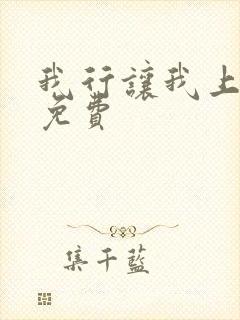 我行讓我上
免費
集千藍